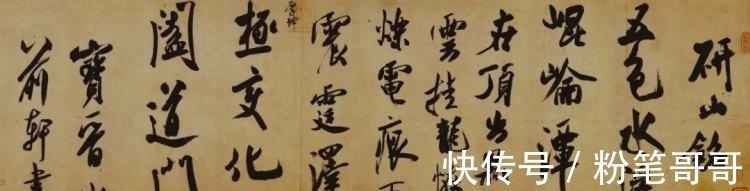 研山銘
五色水
崐崘潭
在頂出
雲挂龍怪
爍電痕下
震霆澤
極變化
闔道門
寶晉山
前軒書
快传号 / 粉笔哥哥